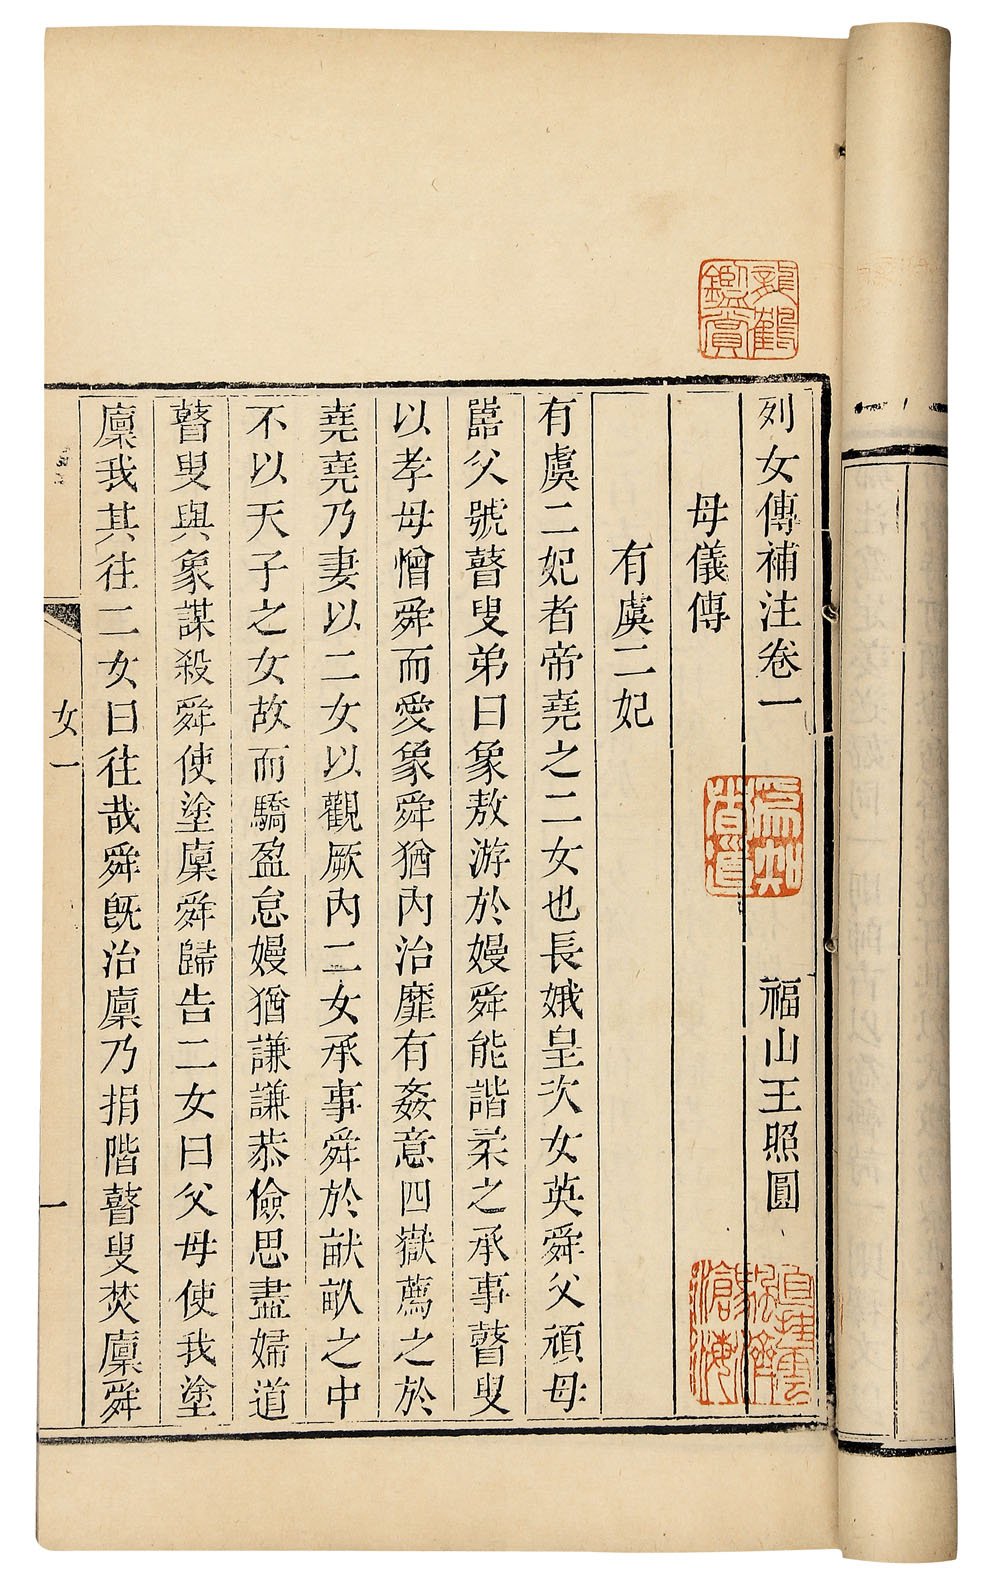 列女傳補注卷一
福山王照圓
母儀傳
有虞二妃
有虞二妃者帝堯之二女也長娥皇次女英舜父頑母
嚚父號瞽叟弟曰象敖游於嫚舜能諧柔之承事瞽叟
以孝母憎舜而愛象舜猶內治靡有姦意四嶽薦之於
堯堯乃妻以二女以觀厥內二女承事舜於畎畝之中
不以天子之女故而驕盈怠嫚猶謙謙恭儉思盡婦道
瞽叟與象謀殺舜使塗廩舜歸告二女曰父母使我塗
廩我其往二女曰往哉舜旣治廩乃捐階瞽叟焚廩舜
女一
一
龍鶴
鑑賞
直挂雲
帆濟
滄海